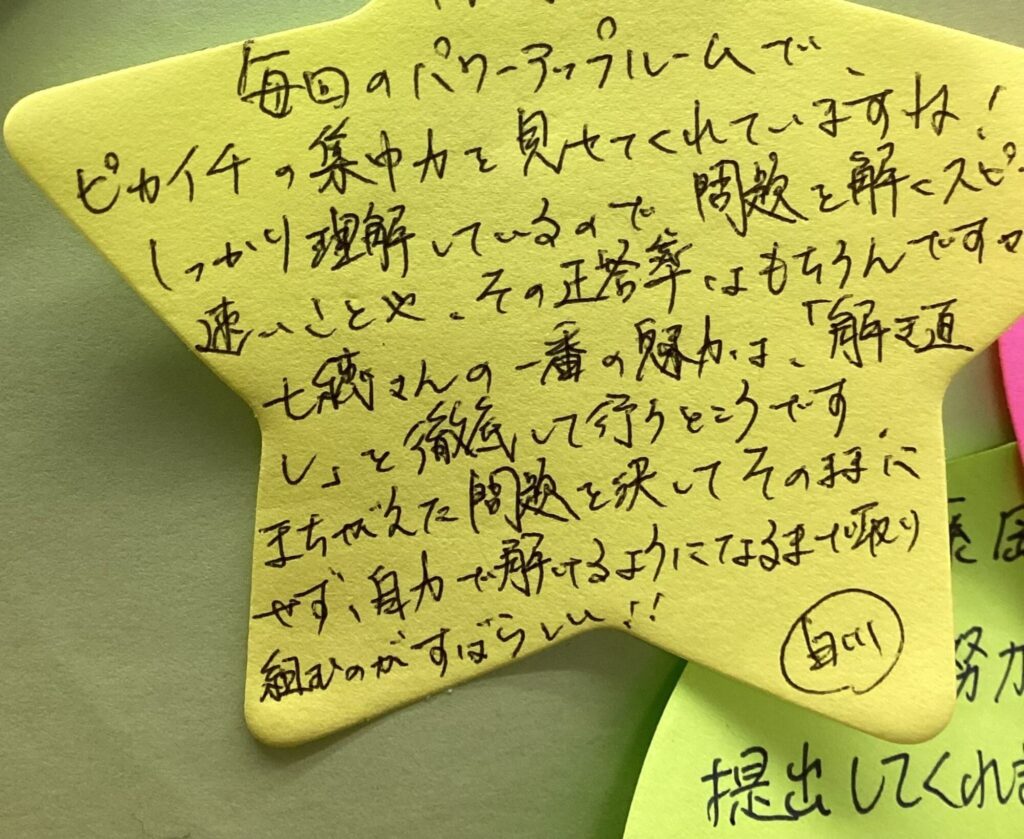 毎回のパワーアップルームで、
ピカイチの集中力を見せてくれていますね!
しっかり理解しているので、問題を解くスピー
速いことや、その正答率はもちろんですが
七穂さんの一番の魅力は、「解き直
し」を徹底して行うところです
まちがえた問題を決してそのままに
せず、自力で解けるようになるまで取り
組むのがすばらしい!!
白川
努力
提出してくれま